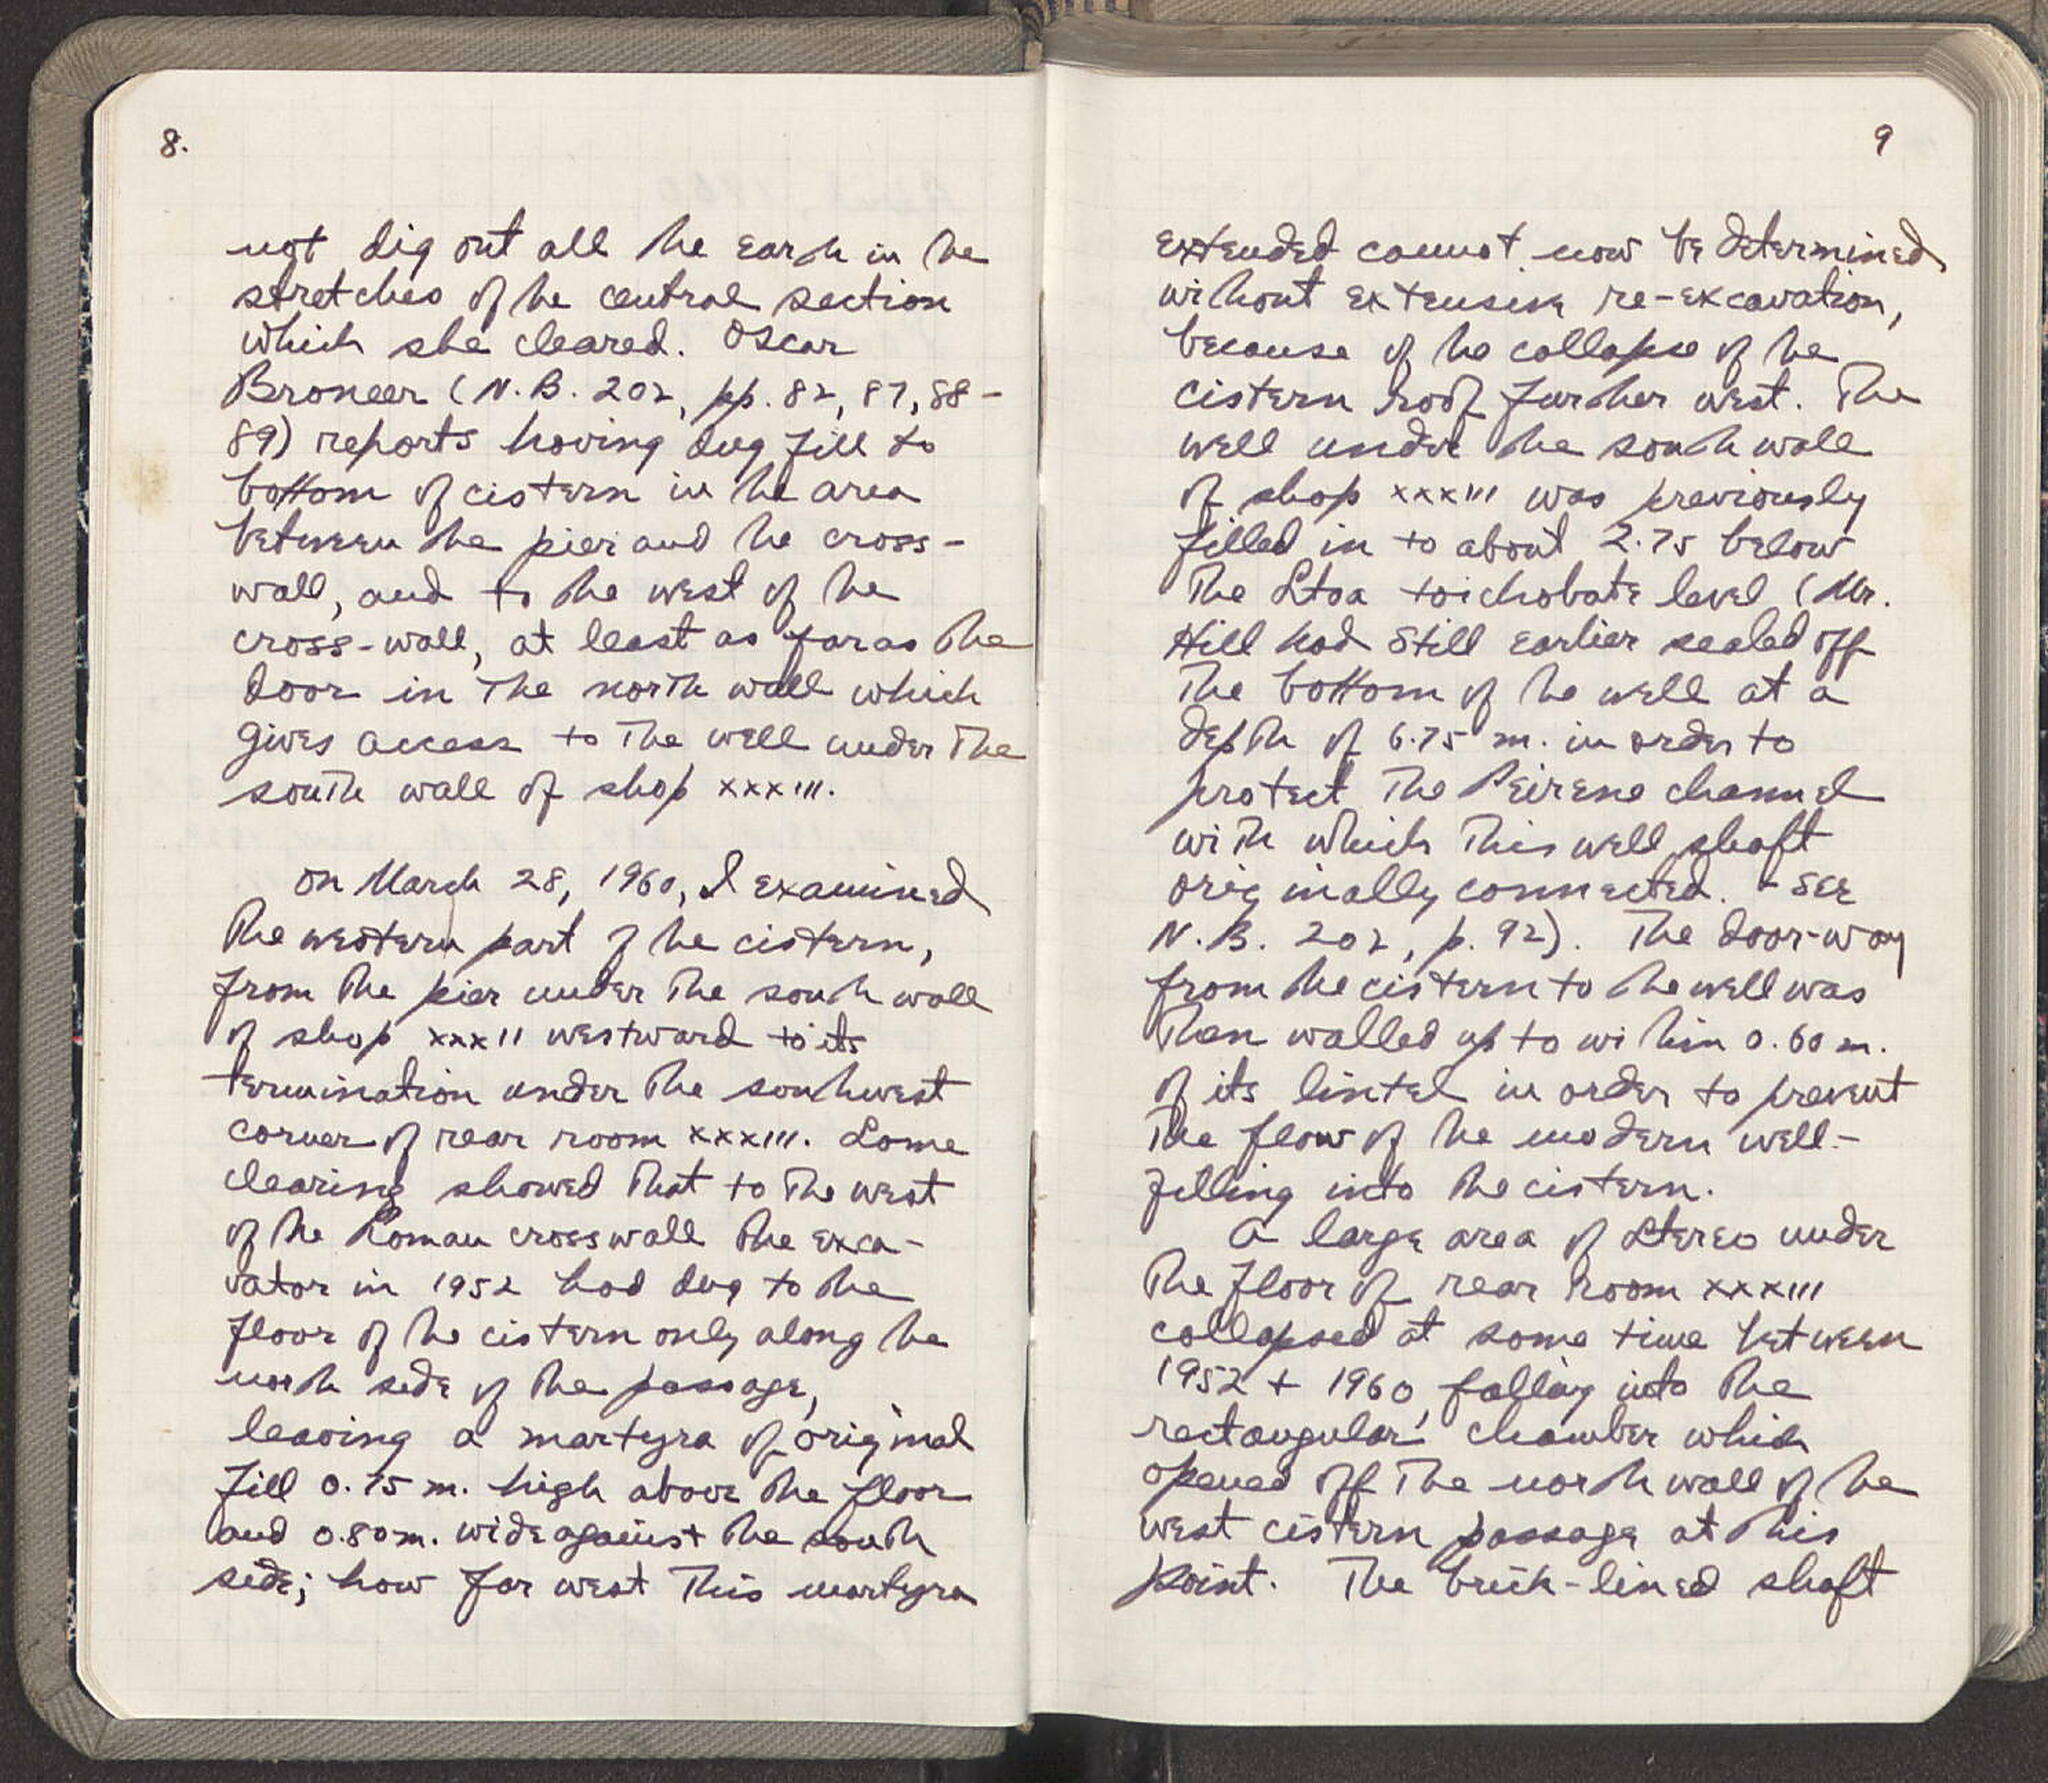 8.
not dig out all the earth in the
stretches of the central section
which she cleared. Oscar
Broneer (N.B. 202, pp. 82, 87, 88-
89) reports having dug fill to
bottom of cistern in the area
between the pier and the cross-
wall, and to the west of the
cross-wall, at least as far as the
door in the north wall which
gives access to the well under the
south wall of shop XXXIII.
On March 28, 1960, I examined
the western part of the cistern,
from the pier under the south wall
of shop XXXII westward to its
termination under the southwest
corner of rear room XXXIII. Some
clearing showed that to the west
of the Roman crosswall the exca-
vator in 1952 had dug to the
floor of the cistern only along the
north side of the passage,
leaving a martyra of original
fill 0.75 m. high above the floor
and 0.80 m. wide against the south
side; how far west this martyra
9
extended cannot now be determined
without extensive re-excavation,
because of the collapse of the
cistern roof further west. The
well under the south wall
of shop XXXIII was previously
filled in to about 2.75 below
the Stoa toichobate level (Mr.
Hill had still earlier sealed off
the bottom of the well at a
depth of 6.75 m. in order to
protect the Peirene channel
with which this well shaft
originally connected. - see
N.B. 202, p. 92). The door-way
from the cistern to the well was
then walled up to within 0.60 m.
of its lintel in order to prevent
the flow of the modern well-
filling into the cistern.
A large area of stereo under
the floor of rear room XXXIII
collapsed at some time between
1952 + 1960, falling into the
rectangular chamber which
opened off the north wall of the
west cistern passage at this
point. The brick-lined shaft